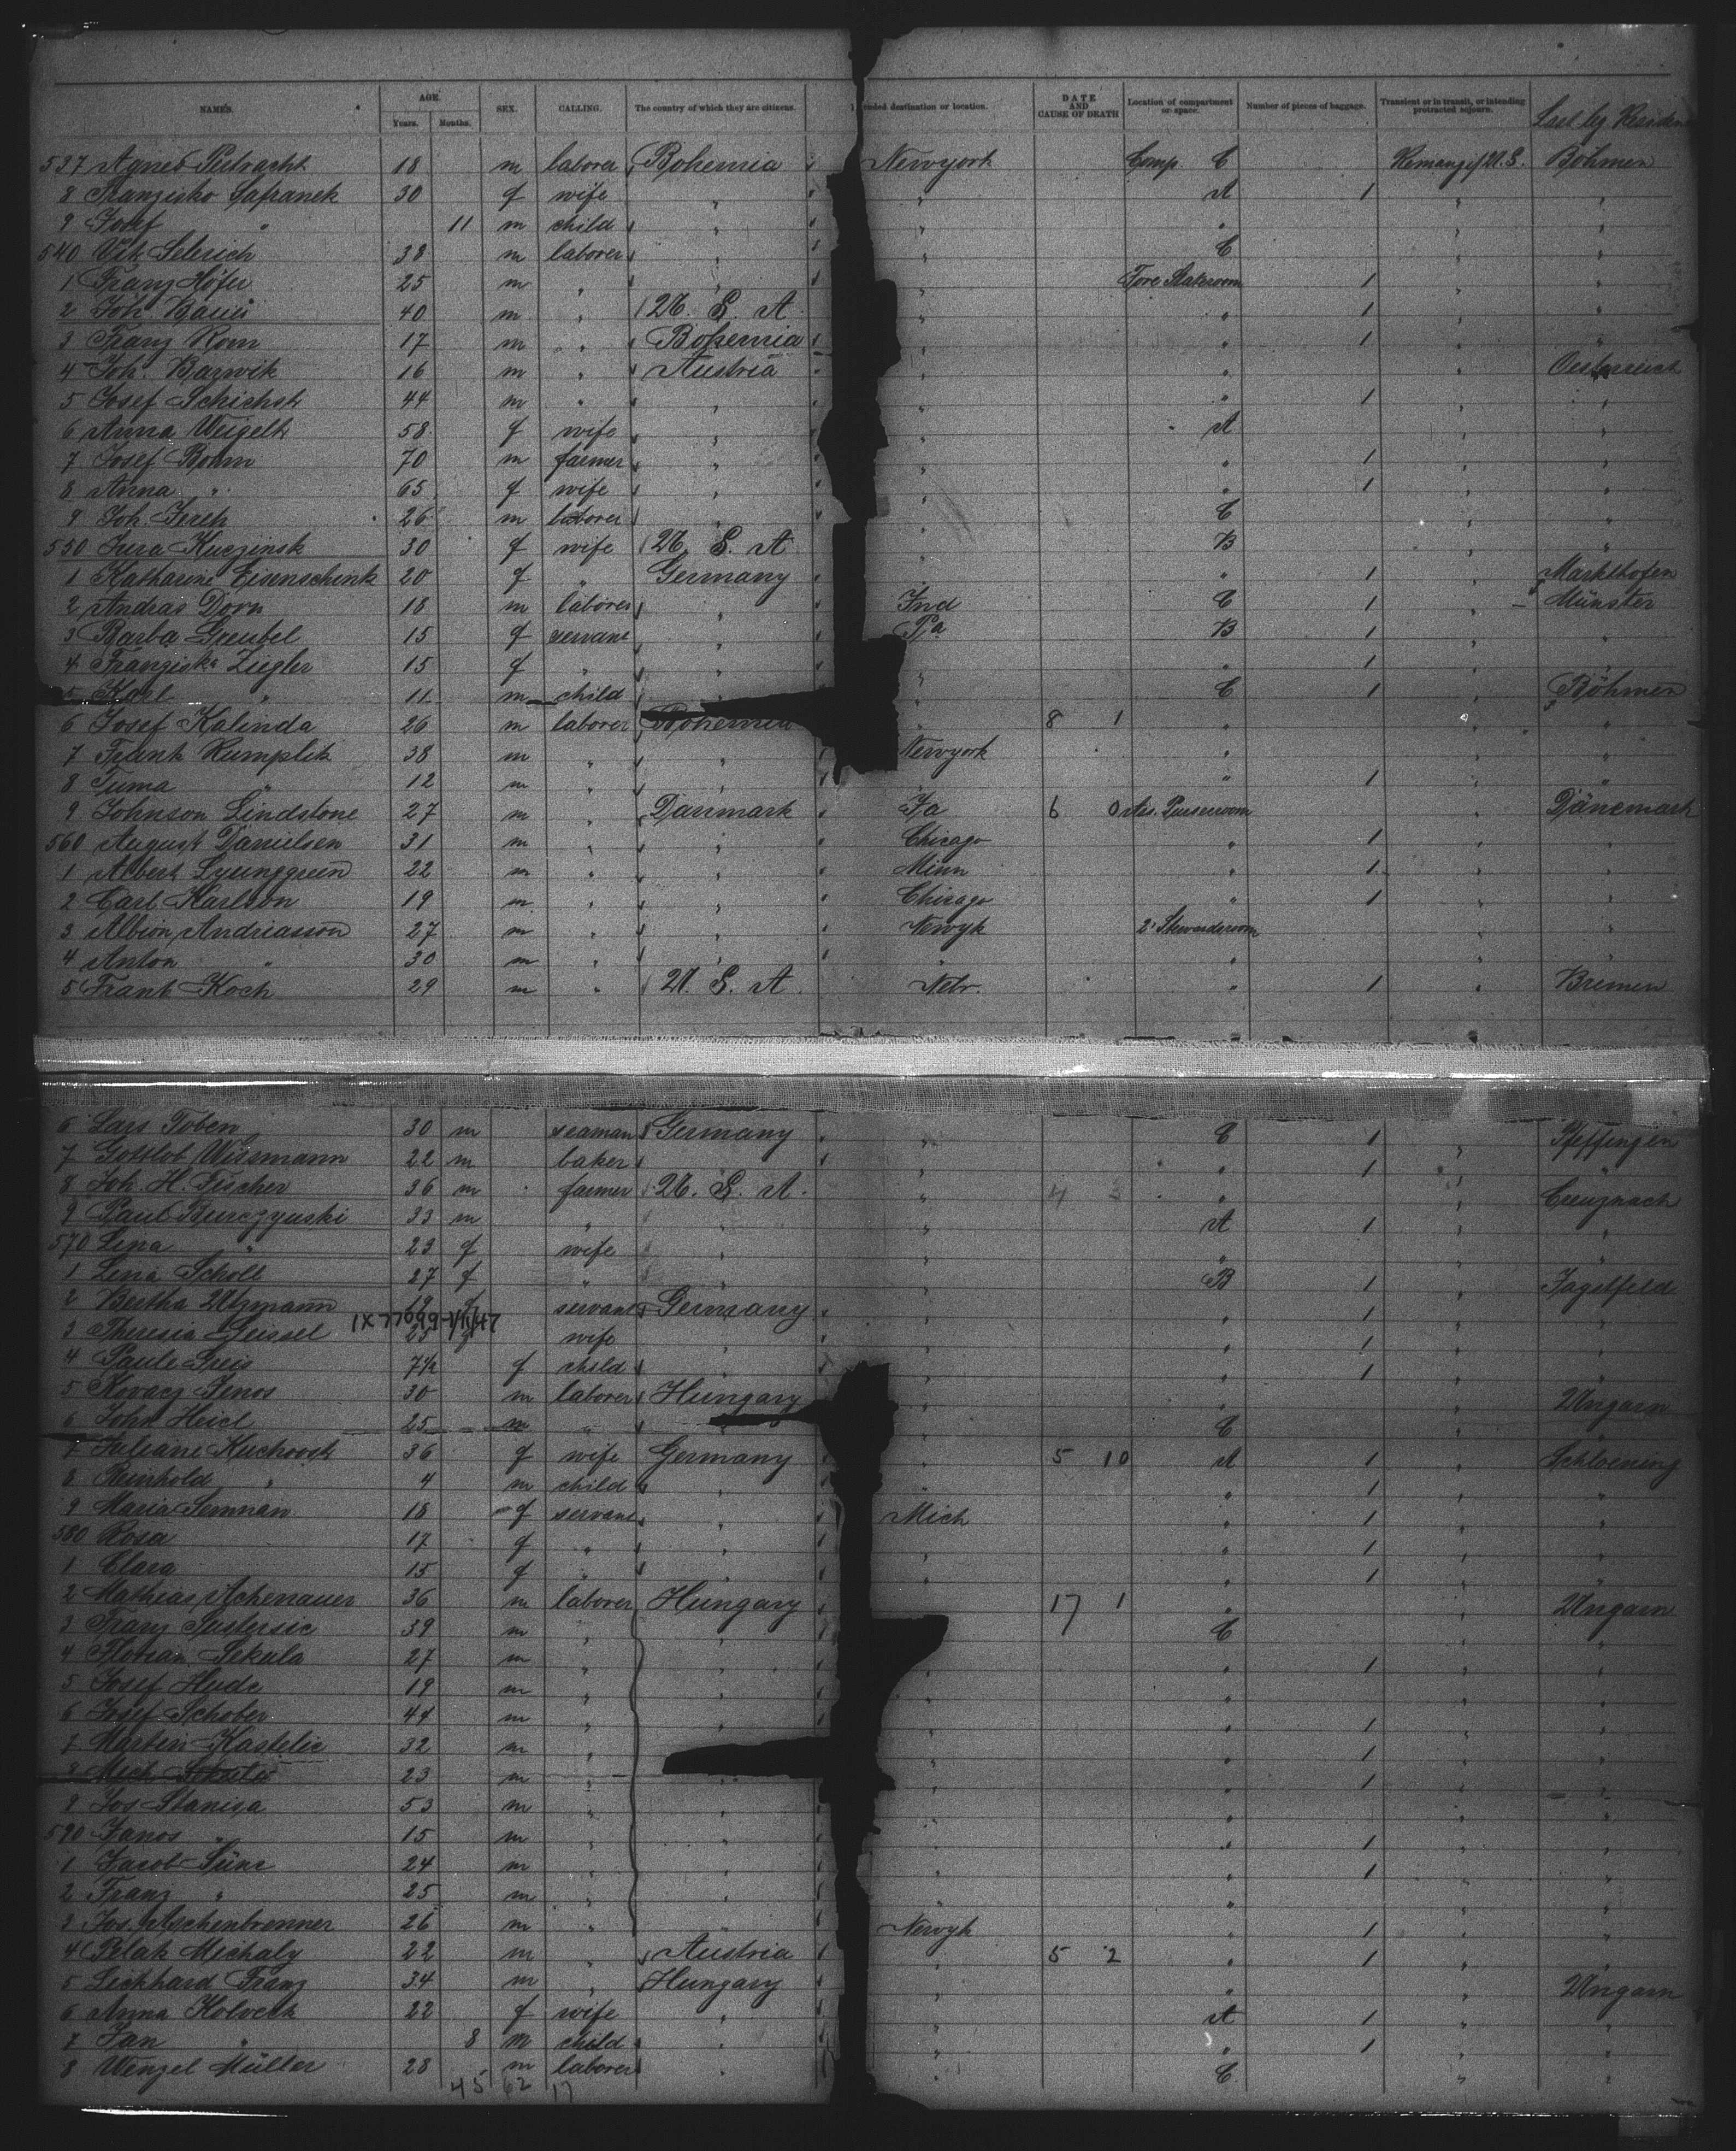 NAMES. AGE. Years. Months. SEX. CALLING. The country of which they are citizens. destination or location. DATE AND CAUSE OF DEATH Location of compartment or space. Number of pieces of baggage. Transient or in transit, or intending protracted sojourn. Last leg. Residen
537 Agnes 18 m labora Bohemia Newyork Comp C U.S. Böhmen
8 Franzisko Safranek 30 f wife " " A 1 " "
9 Josef " 11 m child " " " " "
540 Vik 38 m laborer " " C " "
1 Franz Höfer 25 m " " " Fore Stateroom 1 " "
2 Joh. 40 m " U. S. A. " " 1 " "
3 Franz 17 m " Bohemia " " 1 " "
4 Joh. Bazwik 16 m " Austria " " " Oesterreich
5 Josef Schichst 44 m " " " " 1 " "
6 Anna Weigelt 58 f wife " " A " "
7 Josef Bohm 70 m farmer " " " 1 " "
8 Anna " 65 f wife " " " 1 " "
9 Joh 26 m laborer " " C " "
550 Kuczinsk 30 f wife U. S. A. " B " "
1 Katharine Eisenschenk 20 f " Germany " " 1 " Markthofen
2 Andras Dorn 18 m laborer " Ind C 1 " Münster
3 Barba Greubel 15 f servant " Pa B 1 " "
4 Franziska Ziegler 15 f " " " " 1 " "
5 Karl " 11 m child " " C 1 " Böhmen
6 Josef Kalinda 26 m laborer Bohemia " 8 1 " " "
7 Frank Rumplik 38 m " " Newyork " " "
8 Tuma " 12 m " " " 1 " "
9 Johnson Lindstone 27 m " Danmark Ia 6 0 " Dänemark
560 August Danielsen 31 m " " Chicago " 1 " "
1 Albert Lyunggreen 22 m " " Minn " 1 " "
2 Carl Karlson 19 m " " Chicago " 1 " "
3 Albion Andriasson 27 m " " Newyk 2' Stewardsroom " "
4 Anton " 30 m " " " " " "
5 Frank Koch 29 m " U. S. A. Nebr. " 1 " Bremen
6 Lars Toben 30 m seaman Germany " C 1 " Pfeffingen
7 Gottlob Wissmann 22 m baker " " 1 " "
8 Joh. H. Fischer 36 m farmer U. S. A. " 4 3 " " Creuznach
9 Paul Burczynski 33 m " " " A 1 " "
570 Lena " 23 f wife " " " " "
1 Lena Scholl 27 f " " " B 1 " Jagstfeld
2 Bertha Utzmann 19 f servant Germany " " 1 " "
3 Theresia Geissel 23 f wife " " " 1 " "
4 Paule Greis 7½ f child " " " 1 " "
5 Kovacz Jenos 30 m laborer Hungary " " " Ungarn
6 John Heicl 25 m " " " C " "
7 Juliane Kuchrost 36 f wife Germany " 5 10 A 1 " Schloening
8 Reinhold " 4 m child " " " 1 " "
9 Maria Semnan 18 f servant " Mich " 1 " "
580 Rosa 17 f " " " " 1 " "
1 Clara 15 f " " " " 1 " "
2 Mathias Achenauer 36 m laborer Hungary " 17 1 " " Ungarn
3 Franz Sustersic 39 m " " " C " "
4 Florian Sekula 27 m " " " " 1 " "
5 Josef Hude 19 m " " " " " "
6 Josef Schober 44 m " " " " 1 " "
7 Martin Kastelic 32 m " " " " 1 " "
8 Mich 23 m " " " " 1 " "
9 Jos Staniga 53 m " " " " " "
590 Janos " 15 m " " " " 1 " "
1 Jacob 24 m " " " " 1 " "
2 Franz " 25 m " " " " " "
3 Jos. Aschenbrenner 26 m " " Newyk " 1 " "
4 Pelak Michaly 22 m " Austria " 5 2 " 1 " "
5 Lickhard Franz 34 m " Hungary " " " Ungarn
6 Anna Kolveck 22 f wife " " A 1 " "
7 Jan " 8 m child " " " 1 " "
8 Wenzel Müller 28 m laborer " " C " "
45 62 17